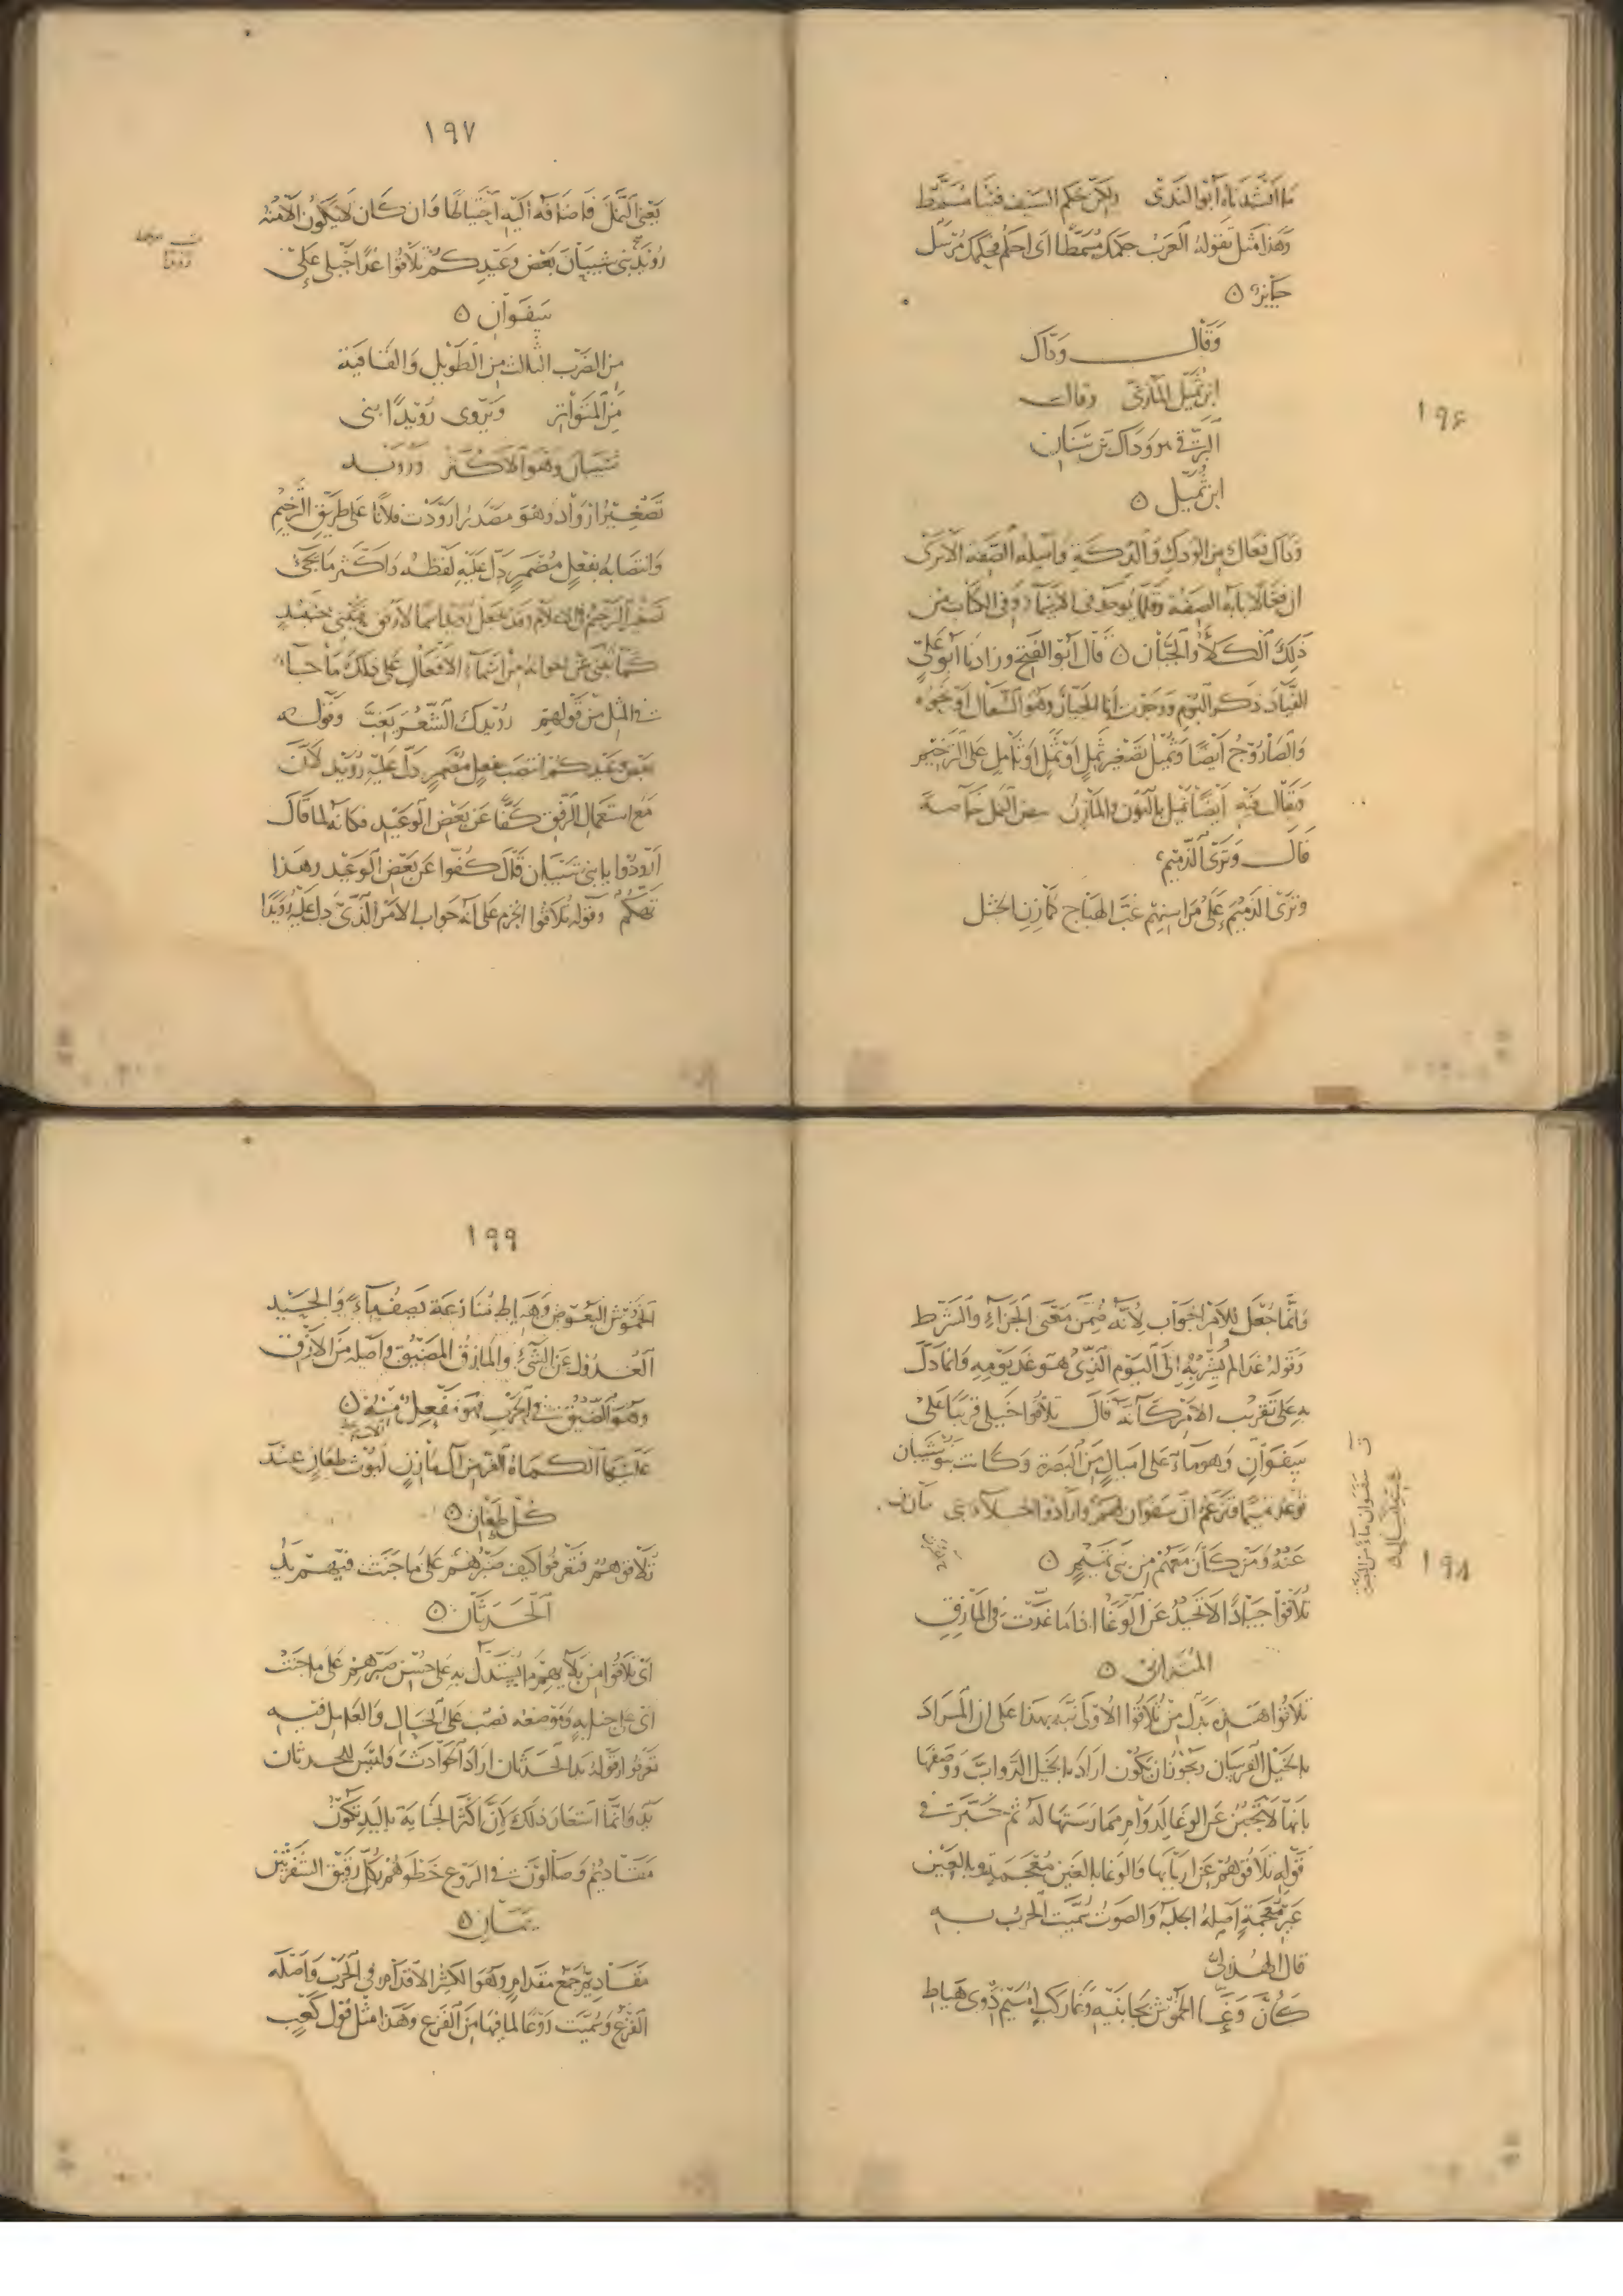 ١٩٦
ما انشدناه ابو الندى ولكن حكم السيف فينا مسمط
وهذا مثل تقوله العرب حكمك مسمطا اى احكم فحكمك مرسل
جايز ۵
وقال وداك
ابن ثميل المازنى وقال
البرقى هو وداك بن سنان
ابن ثميل ۵
وداك فعال من الودك والدكة واصله الصفة الا ترى
ان فعالا بابه الصفة وقلما يوجد فى الاسماء وفى الكتاب من
ذلك الكلاء والجبان ۵ قال ابو الفتح وزادنا ابو على
الفياد ذكر البوم ووجدت انا الجيار وهو السعال او نحوه
والصاروج ايضا وثميل تصغير ثمل او ثمل او ثامل على الترخيم
ويقال فيه ايضا نميل بالنون والمازن بيض النمل خاصة
قال وترى الذميم
وترى الذميم على مراسنهم غب الهياج كمازن الجثل
١٩٧
يعنى النمل فاضافه اليه احتياطا وان كان لا يكون الا منه
رويد بنى شيبان بعض وعيدكم تلاقوا غدا خيلى على
سفوان ۵
من الضرب الثالث من الطويل والقافية
من المتواتر ويروى رويدا بنى
شيبان وهو الاكثر ورويد
تصغير ارواد وهو مصدر ارودت فلانا على طريق الترخيم
وانتصابه بفعل مضمر دل عليه لفظه واكثر ما يجئ
تصغير الترخيم فى الاعلام وقد جعل رويد اسما لارفق فيبنى حينئذ
كما بنى غن اخواته من اسماء الافعال على ذلك ما جاء
فى المثل من قولهم رويدك الشعر يغب وقوله
بعض وعيدكم انتصب بفعل مضمر دل عليه رويد لان
مع استعمال الرفق كفا عن بعض الوعيد فكانه لما قال
ارودوا يا بنى شيبان قال كفوا عن بعض الوعيد وهذا
تهكم وقوله تلاقوا انجزم على انه جواب الامر الذى دل عليه رويدا
١٩٨
وانما جعل للامر الجواب لانه ضمن معنى الجزاء والشرط
وقوله غدا لم يشر به الى اليوم الذى هو غد يومه وانما دل
به على تقريب الامر كانه قال تلاقوا خيلى قريبا على
سفوان وهو ماء على اميال من البصرة وكانت بنو شيبان
توعد تميما فتزعم ان سفوان لهم وارادوا اجلاء بنى مازن
عنه ومن كان معهم من بنى تميم ۵
تلاقوا جيادا لا تحيد عن الوغا اذا ما غدت فى المازق
المتدانى ۵
تلاقوا هذه بدل من تلاقوا الاولى نبه بهذا على ان المراد
بالخيل الفرسان ويجوز ان يكون اراد بالخيل الدواب ووصفها
بانها لا تجبن عن الوغا لدوام ممارستها له ثم خبرت فى
قوله تلاقوهم عن اربابها والوغا بالغين معجمة وبالعين
غير معجمة اصله الجلبة والصوت سميت الحرب به
قال الهذلى
كان وغا الخموش بجانبيه وغا ركب اميم ذوى هياط
١٩٩
الخموش البعوض وهياط منازعة يصف ماء والحيد
العدول عن الشئ والمازق المضيق واصله من الازق
وهو الضيق فى الحرب وهو مفعل منه ۵
عليها الكماة الغر من آل مازن ليوث طعان عند
كل طعان ۵
تلاقوهم فتعرفوا كيف صبرهم على ما جنت فيهم يد
الحدثان ۵
اى تلاقوا من بلائهم ما يستدل به على حسن صبرهم على ما جنت
اى على جناية وموضعه نصب على الحال والعامل فيه
تعرفوا وقوله يد الحدثان اراد الحوادث وليس للحدثان
يد وانما استعار ذلك لان اكثر الجناية باليد تكون
مقاديم وصالون فى الروع خطوهم بكل رقيق الشفرتين
يمان ۵
مقاديم جمع مقدام وهو الكثير الاقدام فى الحرب واصله
الفزع وسميت روعا لما فيها من الفزع وهذا مثل قول كعب